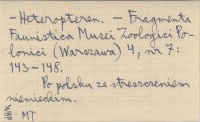 - Heteropteren. - Fragmenta
Faunistica Musei Zoologici Po-
lonici (Warszawa) 4, nr 7:
143-148.
Po polsku ze streszczeniem
niemieckim.
MT